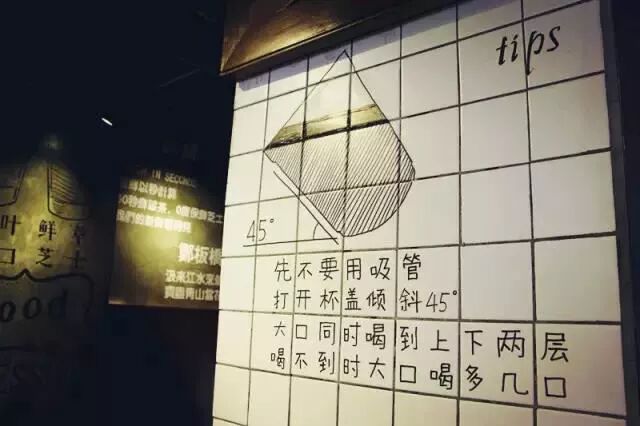 tips
45°
先不要用吸管
打开杯盖倾斜45°
大口同时喝到上下两层
喝不到时大口喝多几口
IN SECONDS
鄭板橋
叶 鲜
口 芝士
ood